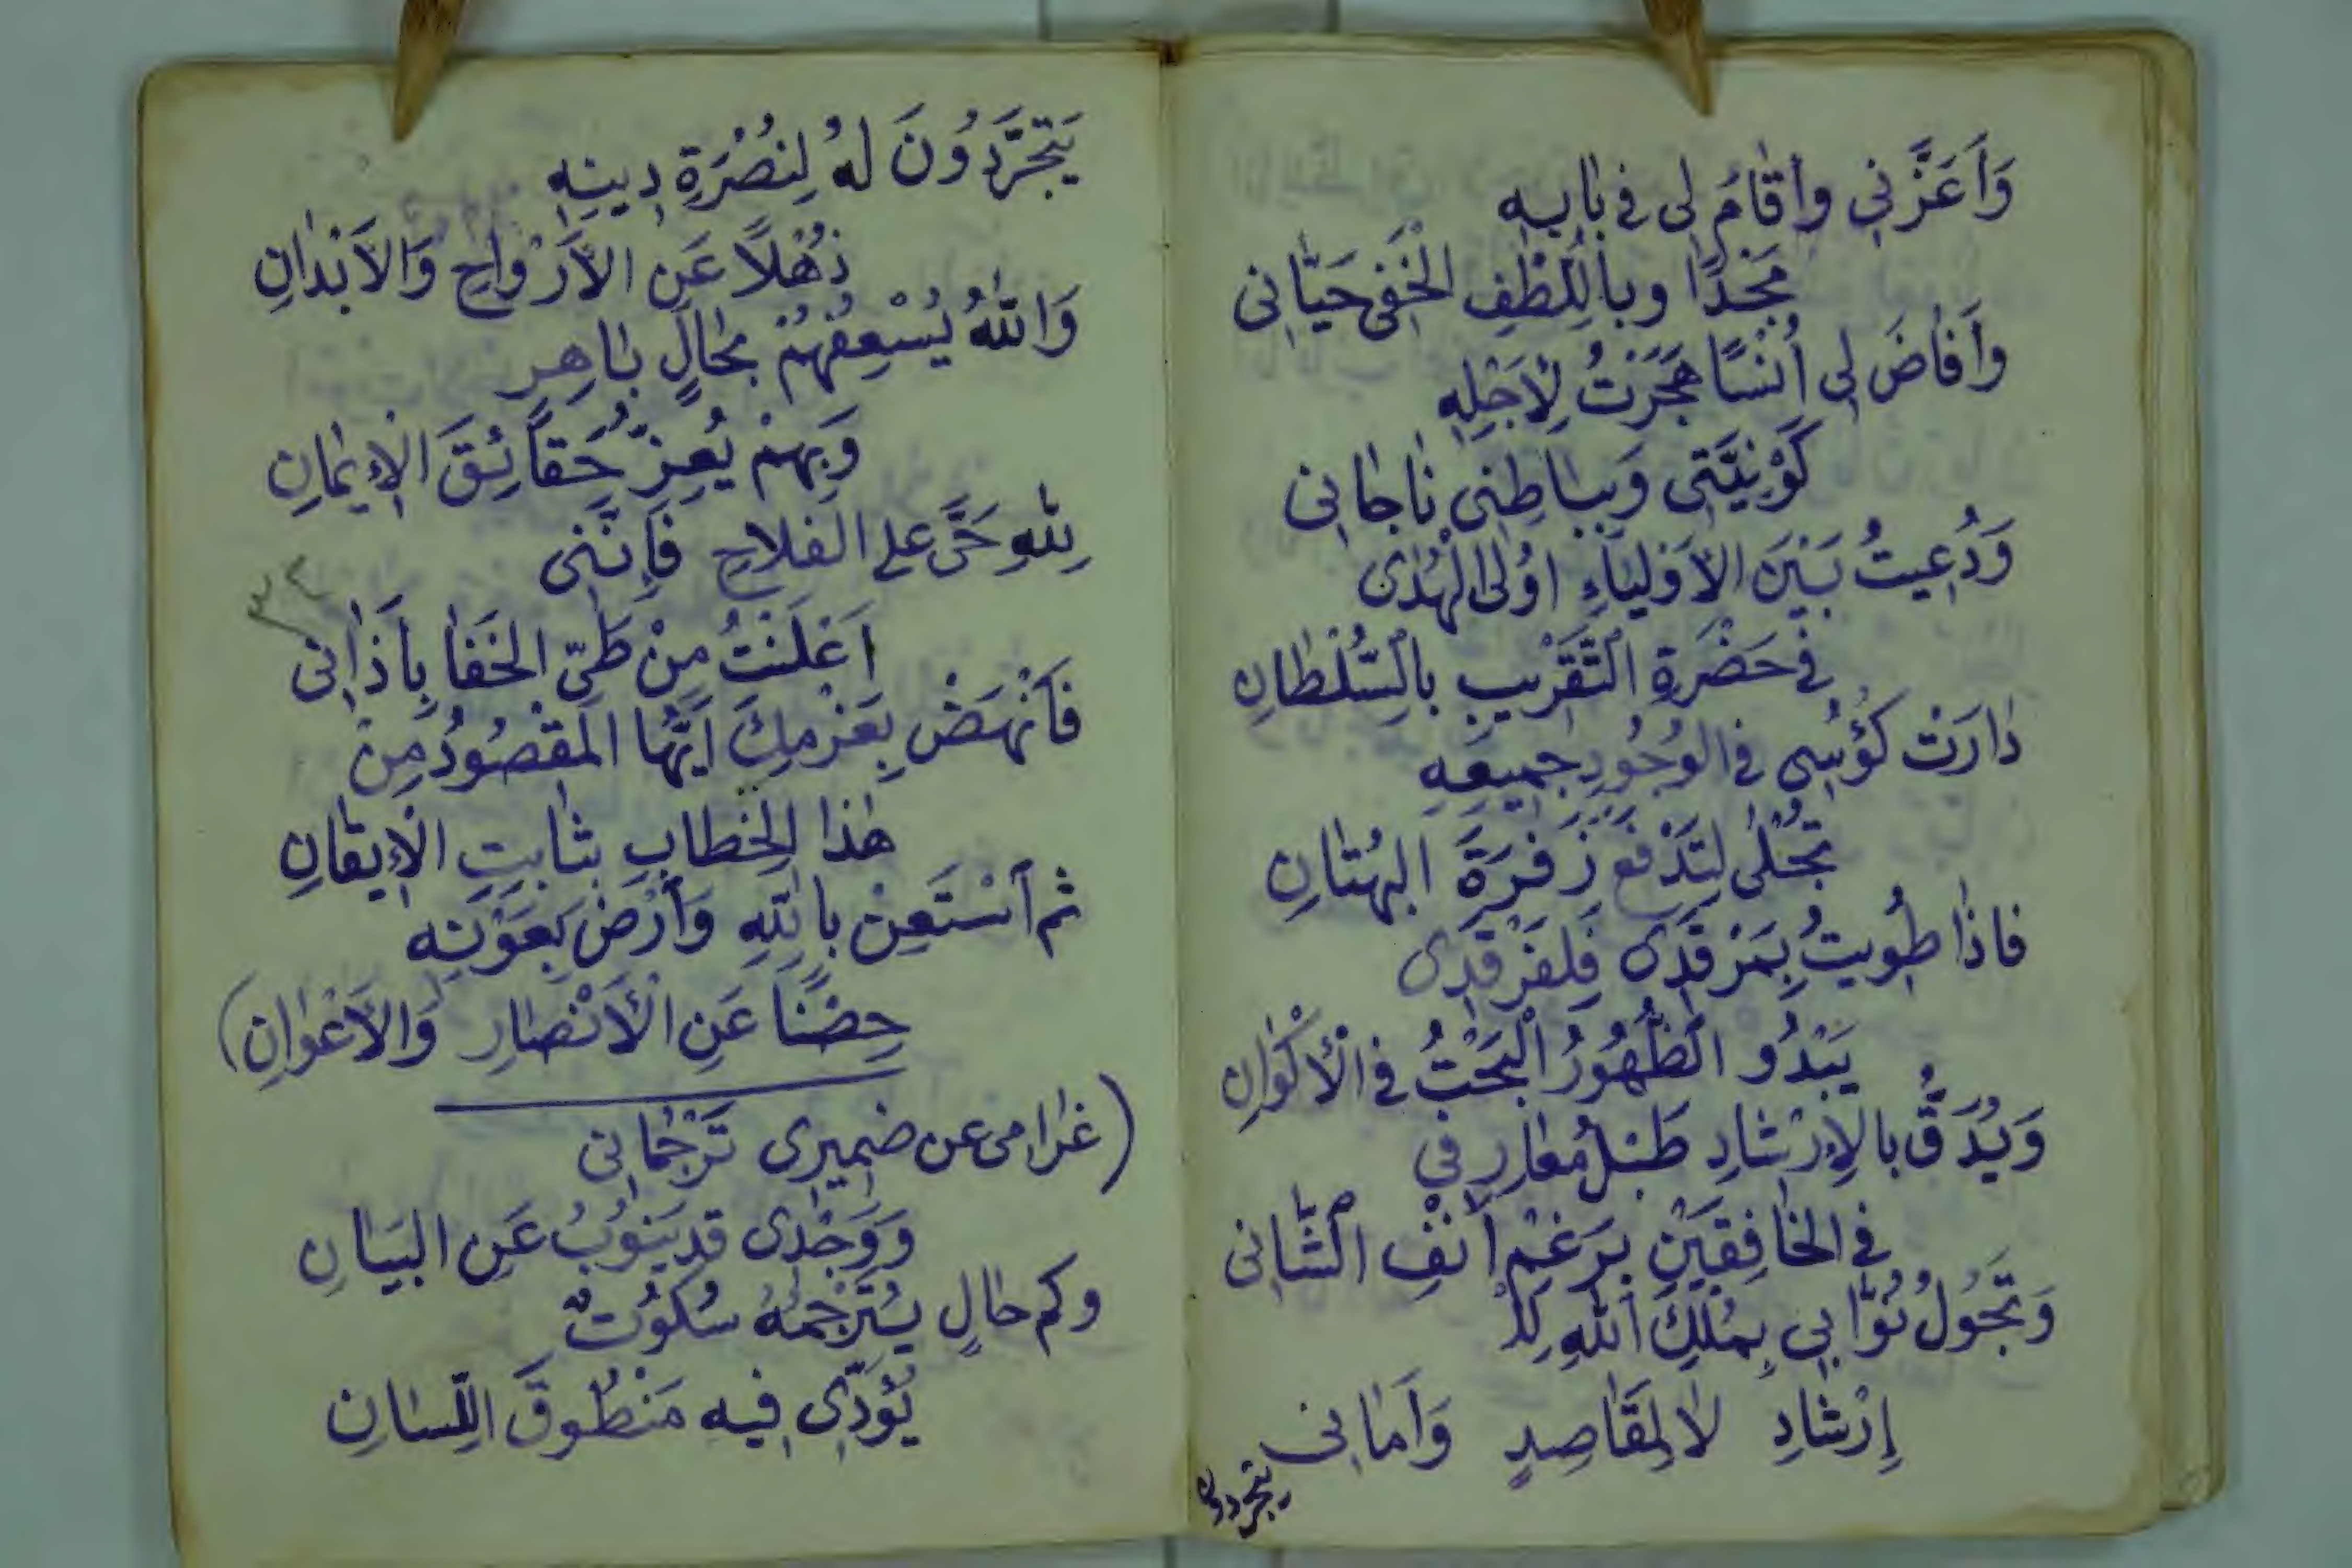 وَاَعَزَّنِي وَاَقَامَ لِى فِى بَابِهِ
مَجْدًا وَبِاللُّطْفِ الْخَفِى حَيَّانِى
وَاَفَاضَ لِى اُنْسًا هَجَرْتُ لِاَجْلِهِ
كَوْنِيَّتِى وَبِبَاطِنِى نَاجَانِى
وَدُعِيتُ بَيْنَ الاَوْلِيَاءِ اُولِى الْهُدٰى
فِى حَضْرَةِ التَّقْرِيبِ بِالسُّلْطَانِ
دَارَتْ كُؤُسِى فِى الوُجُودِ جَمِيعِهِ
تُجْلٰى لِتَدْفَعَ زَفْرَةَ البُهْتَانِ
فَاِذَا طُوِيتُ بِمَرْقَدِى فَلِفَرْقَدِى
يَبْدُو الظُّهُورُ الْبَحْتُ فِى الْأَكْوَانِ
وَيُدَقُّ بِالاِرْشَادِ طَبْلُ مَعَارِفِي
فِى الخَافِقَيْنِ بِرَغْمِ اَنْفِ الشَّانِى
وَتَجُولُ نُوَّابِي بِمُلْكِ اللهِ لِلْ
إِرْشَادِ لَا لِمَقَاصِدٍ وَاَمَانِى
يتجردون
يَتَجَرَّدُونَ لَهُ لِنُصْرَةِ دِينِهِ
ذُهْلًا عَنِ الاَرْوَاحِ وَالاَبْدَانِ
وَاللهُ يُسْعِفُهُمْ بِحَالٍ بَاهِرٍ
وَبِهِمْ يُعِزُّ حَقَائِقَ الاِيمَانِ
لِلهِ حَىَّ عَلَى الفَلَاحِ فَاِنَّنِى
اَعْلَنْتُ مِنْ طَىِّ الخَفَا بِاَذَانِى
٣٤
فَانْهَضْ بِعَزْمِكَ اَيُّهَا المَقْصُودُ مِنْ
هٰذَا الخِطَابِ بِثَابِتِ الْاِيقَانِ
ثم اسْتَعِنْ بِاللهِ وَارْضَ بِعَوْنِهِ
حِضْنًا عَنِ الْأَنْصَارِ وَالاَعْوَانِ)
(غَرَامِى عن ضَمِيرِى تَرْجُمَانِى
وَوَجْدِى قد يَنُوبُ عَنِ البَيَانِ
وكم حَالٍ يُتَرْجِمُهُ سُكُوتٌ
يُؤَدِّى فِيهِ مَنْطُوقَ اللِّسَانِ